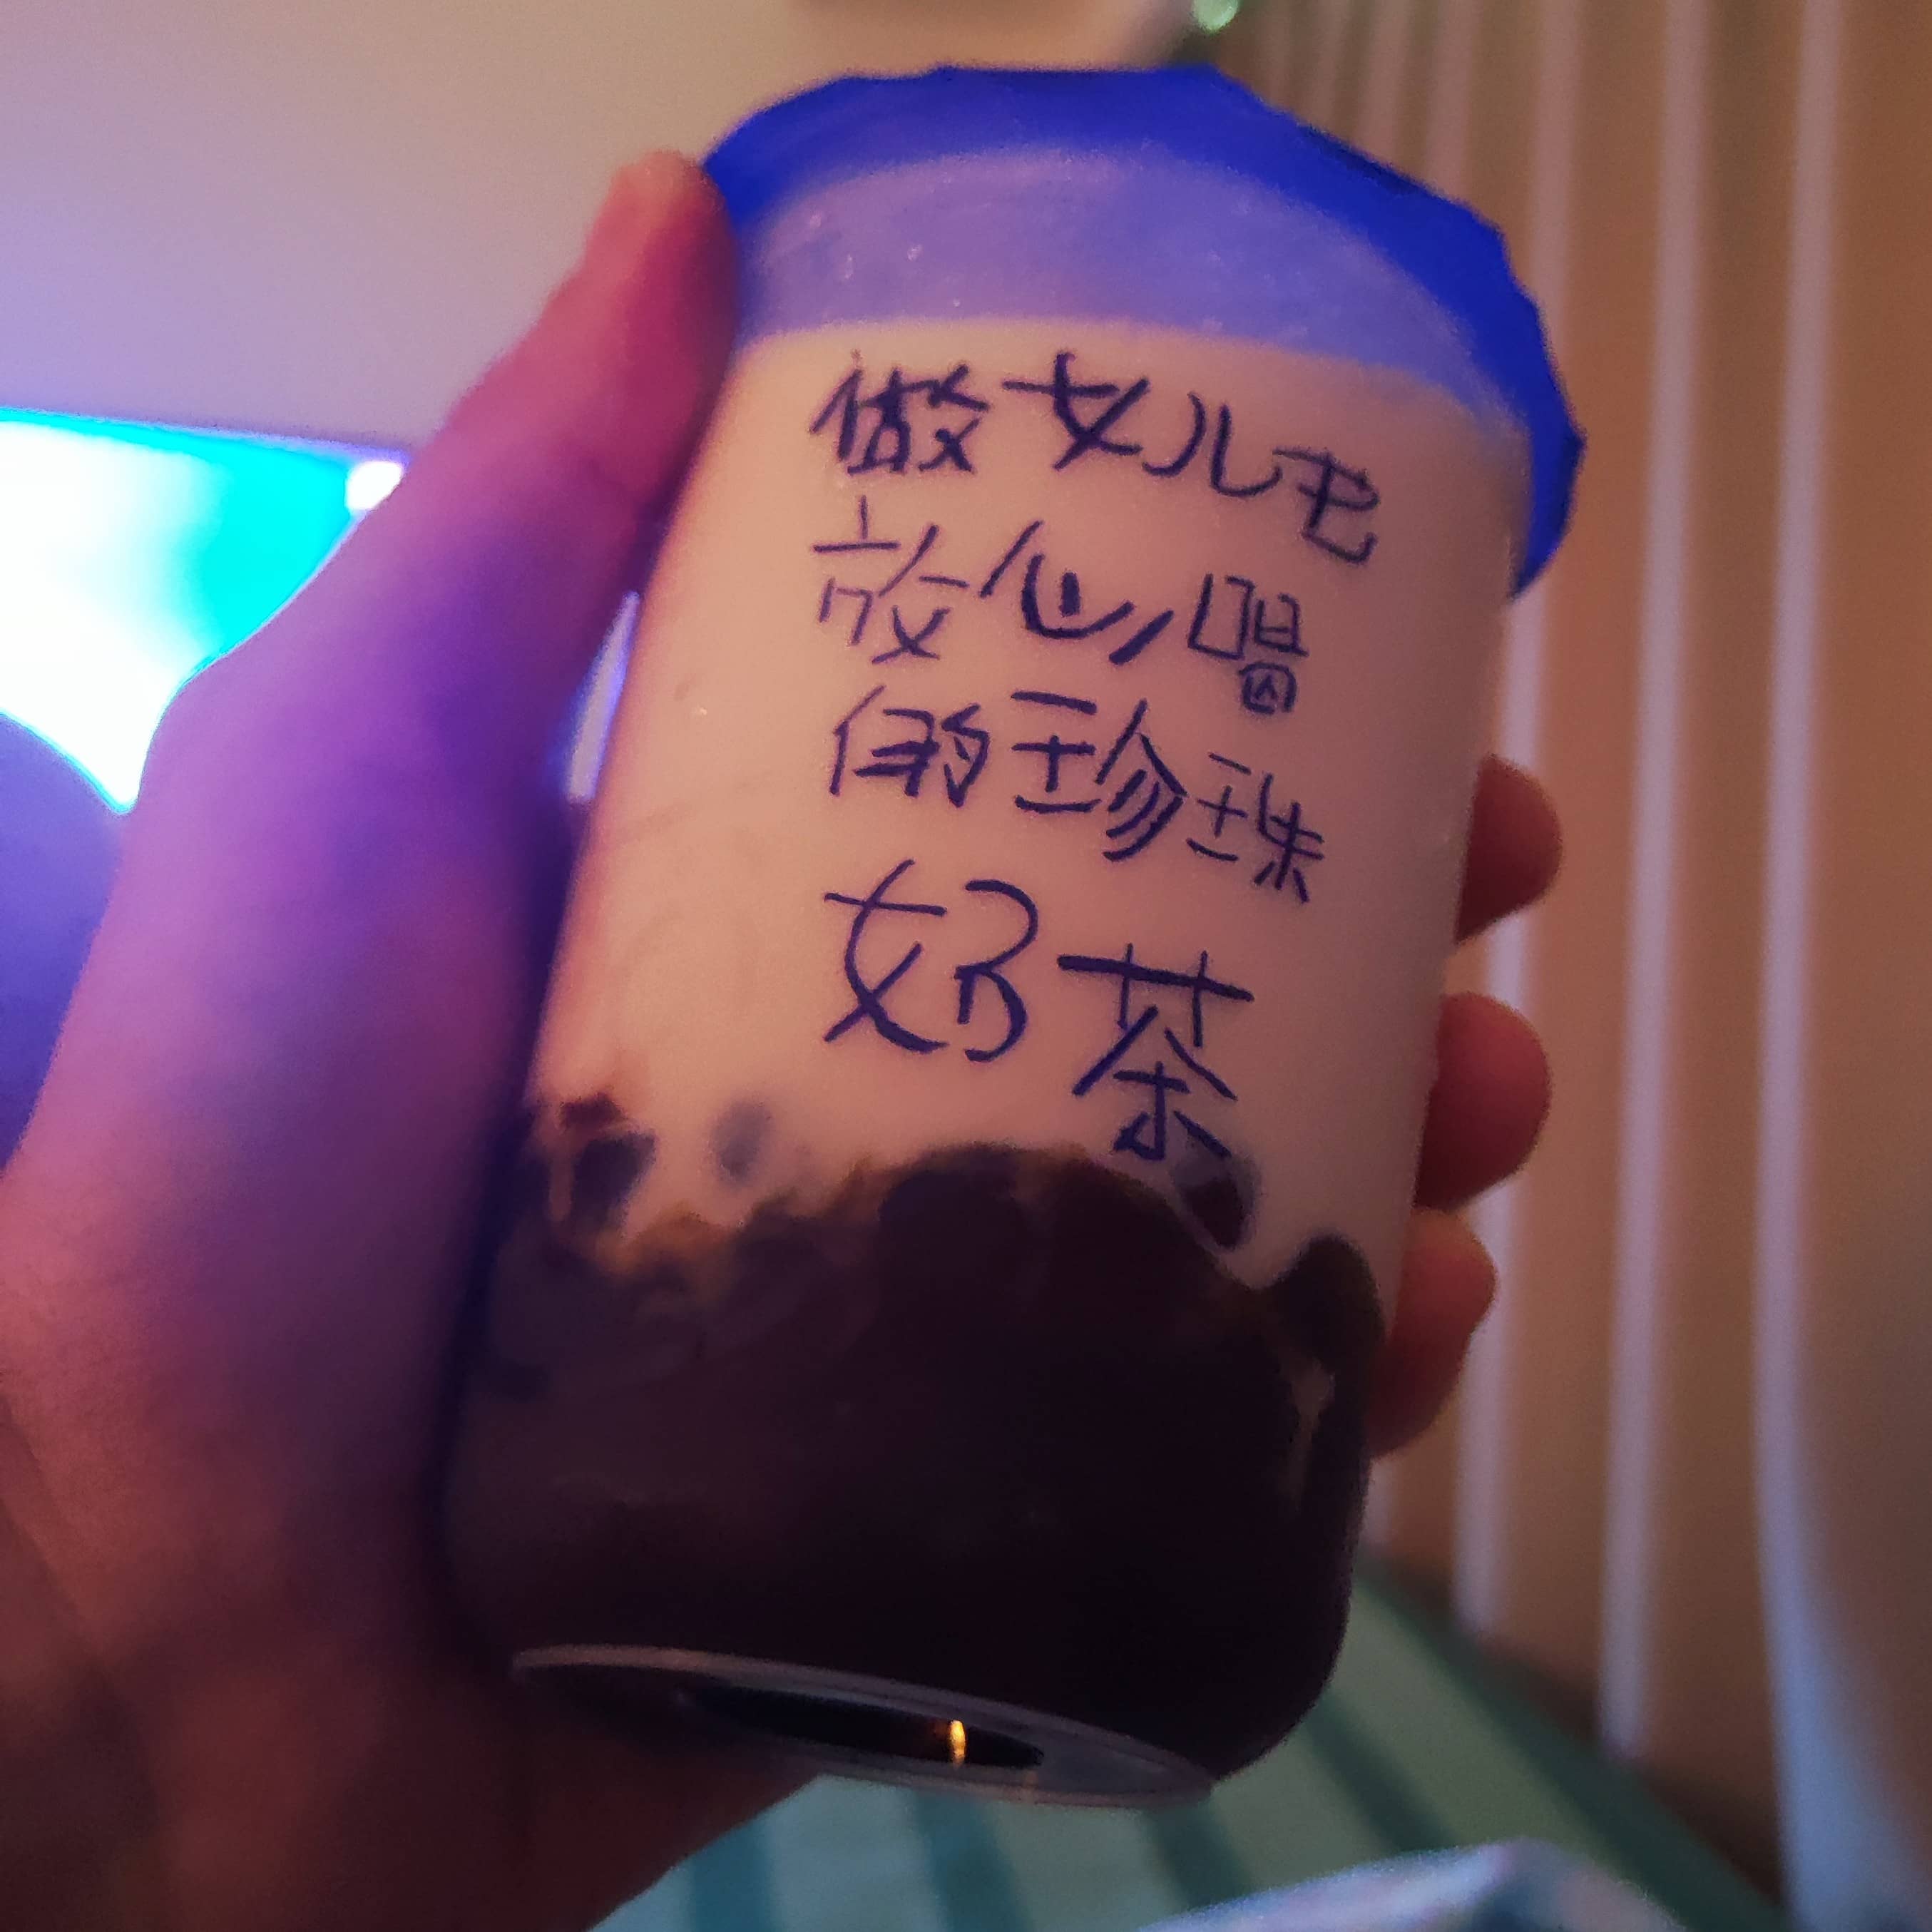 做女儿也
放心喝
的珍珠
奶茶